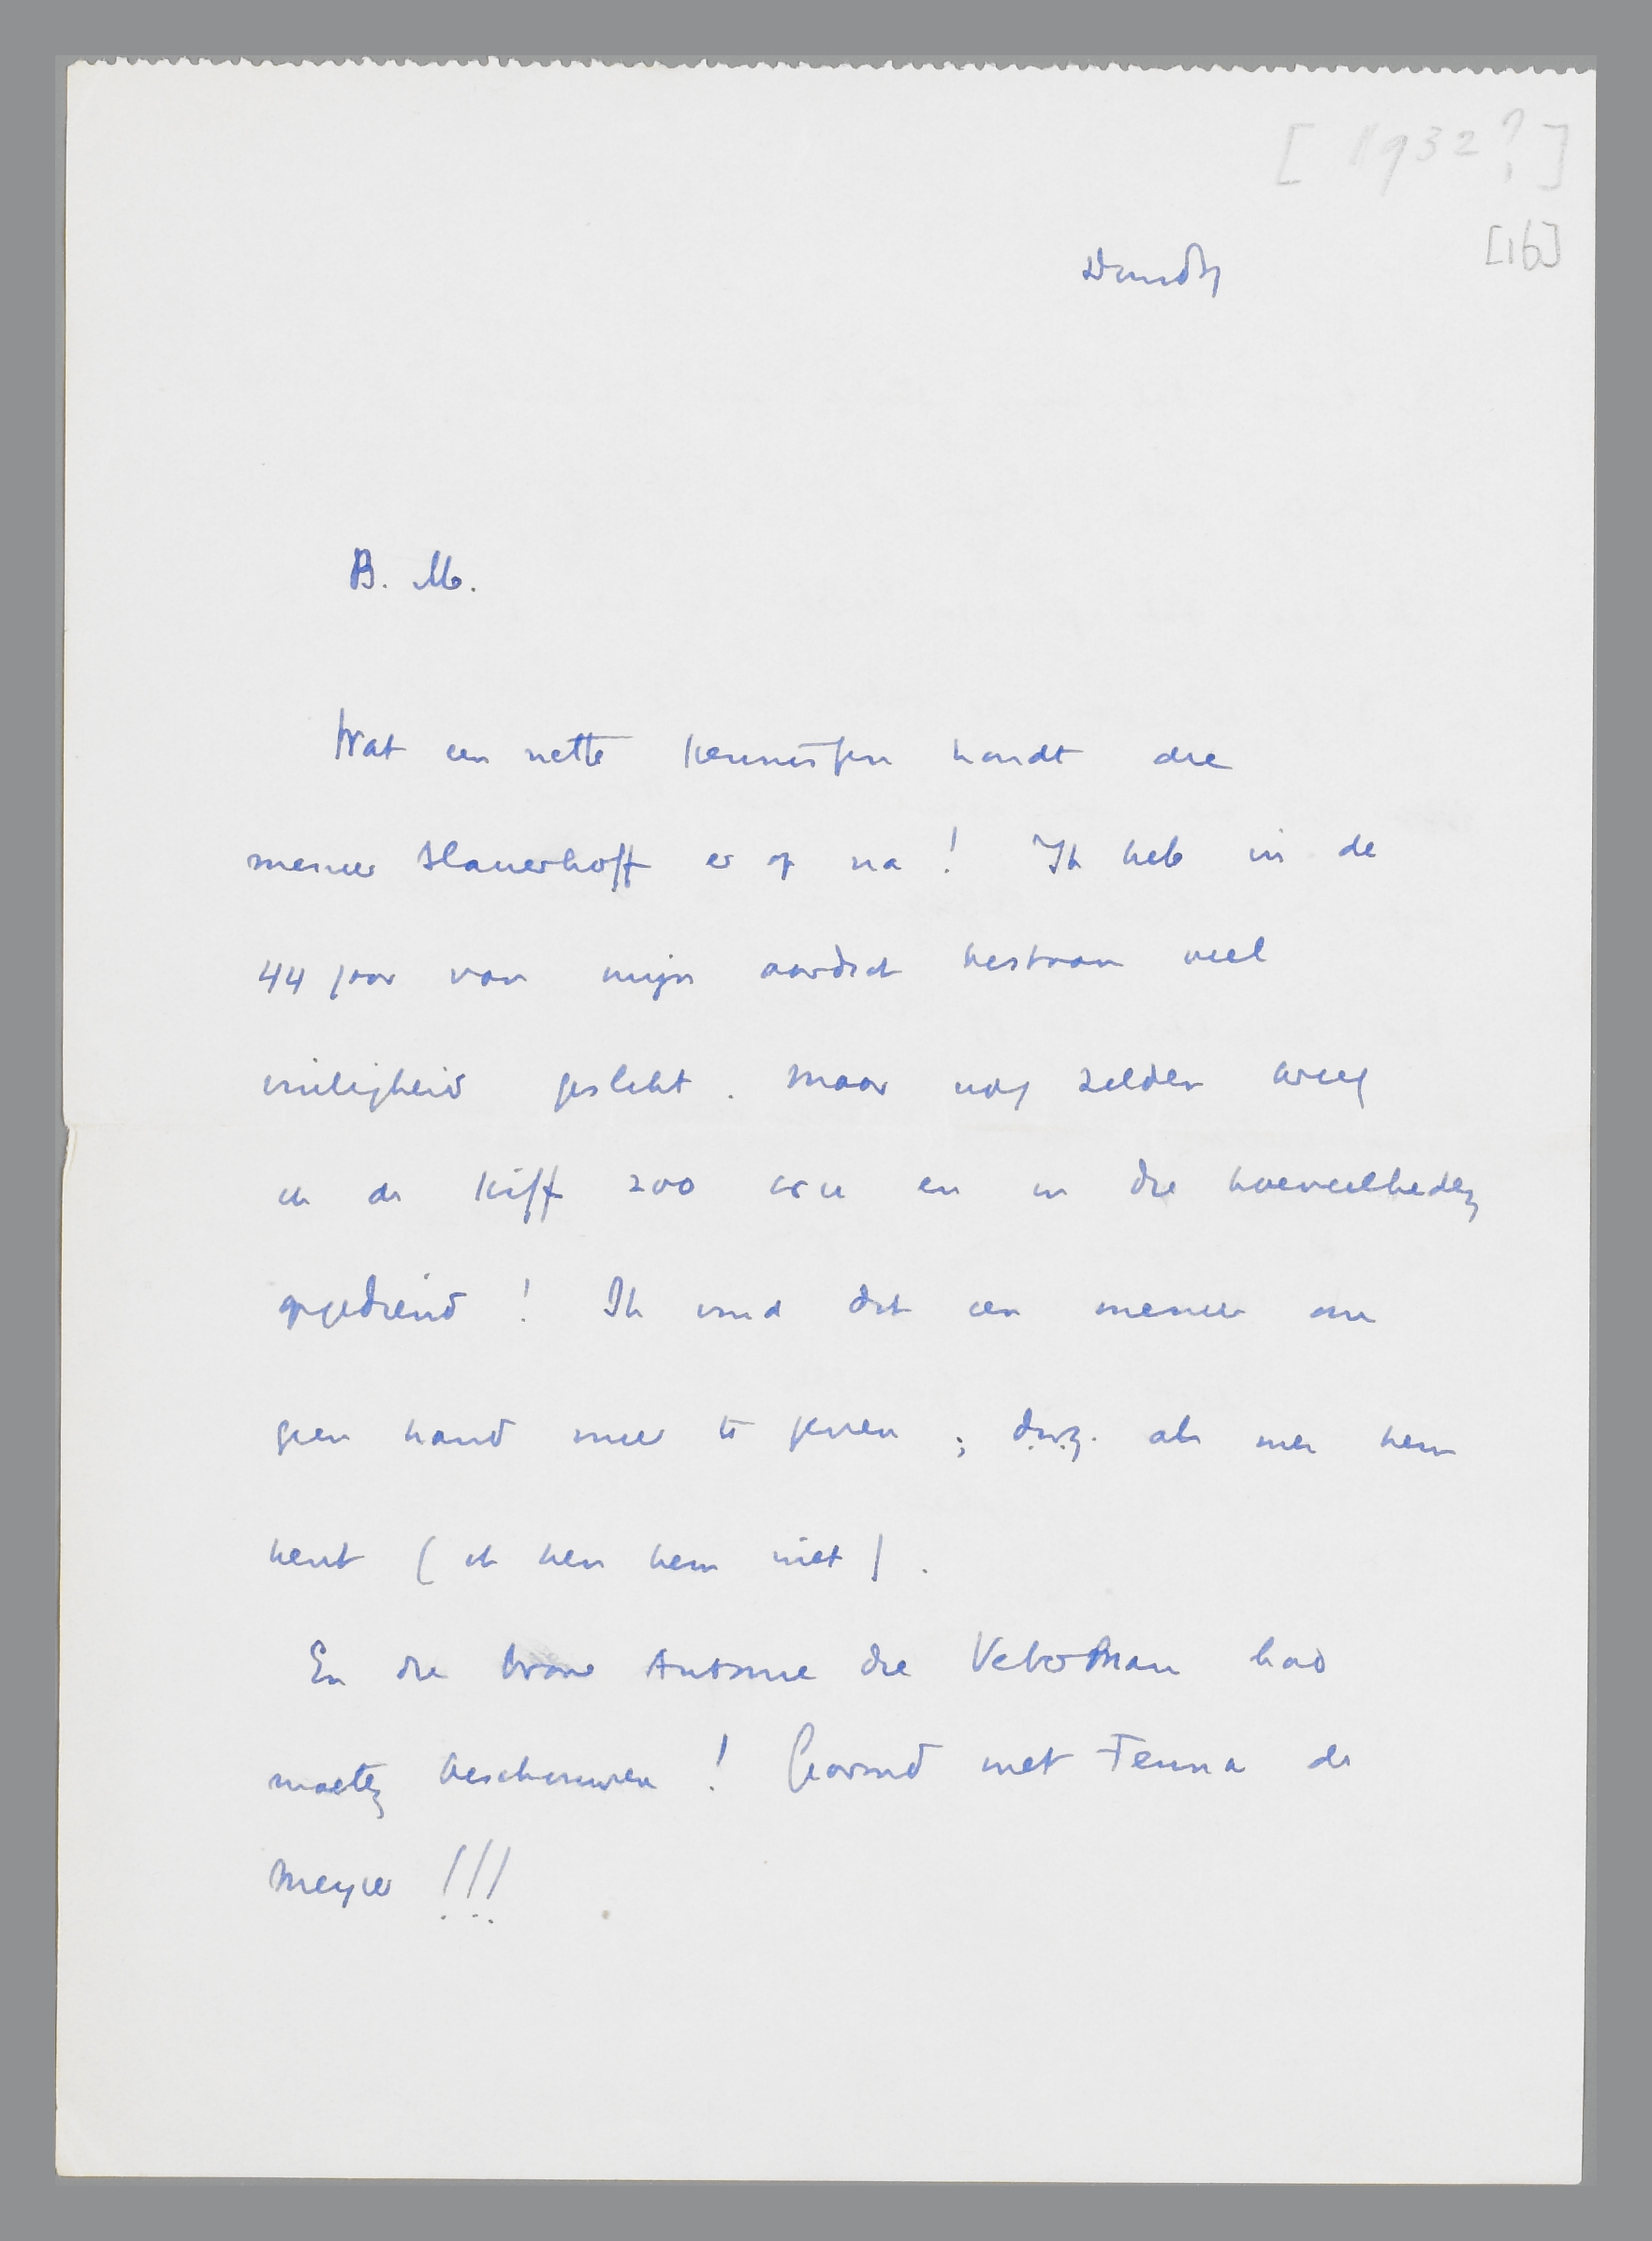 [1932?]
[16]
Dinsdg
B. M.
Wat een nette kennissen houdt die
meneer Slauerhoff er op na! Ik heb in de
44 jaar van mijn aardsch bestaan veel
vuiligheid geslikt. Maar nog zelden kreeg
ik de kiff zoo cru en in die hoeveelheden
opgediend! Ik vind dit een meneer om
geen hand meer te geven; d.w.z. als men hem
kent (ik ken hem niet).
En die brave Antoine die had
moeten beschouwen! Gearmd met Fenna de
Meyier!!!